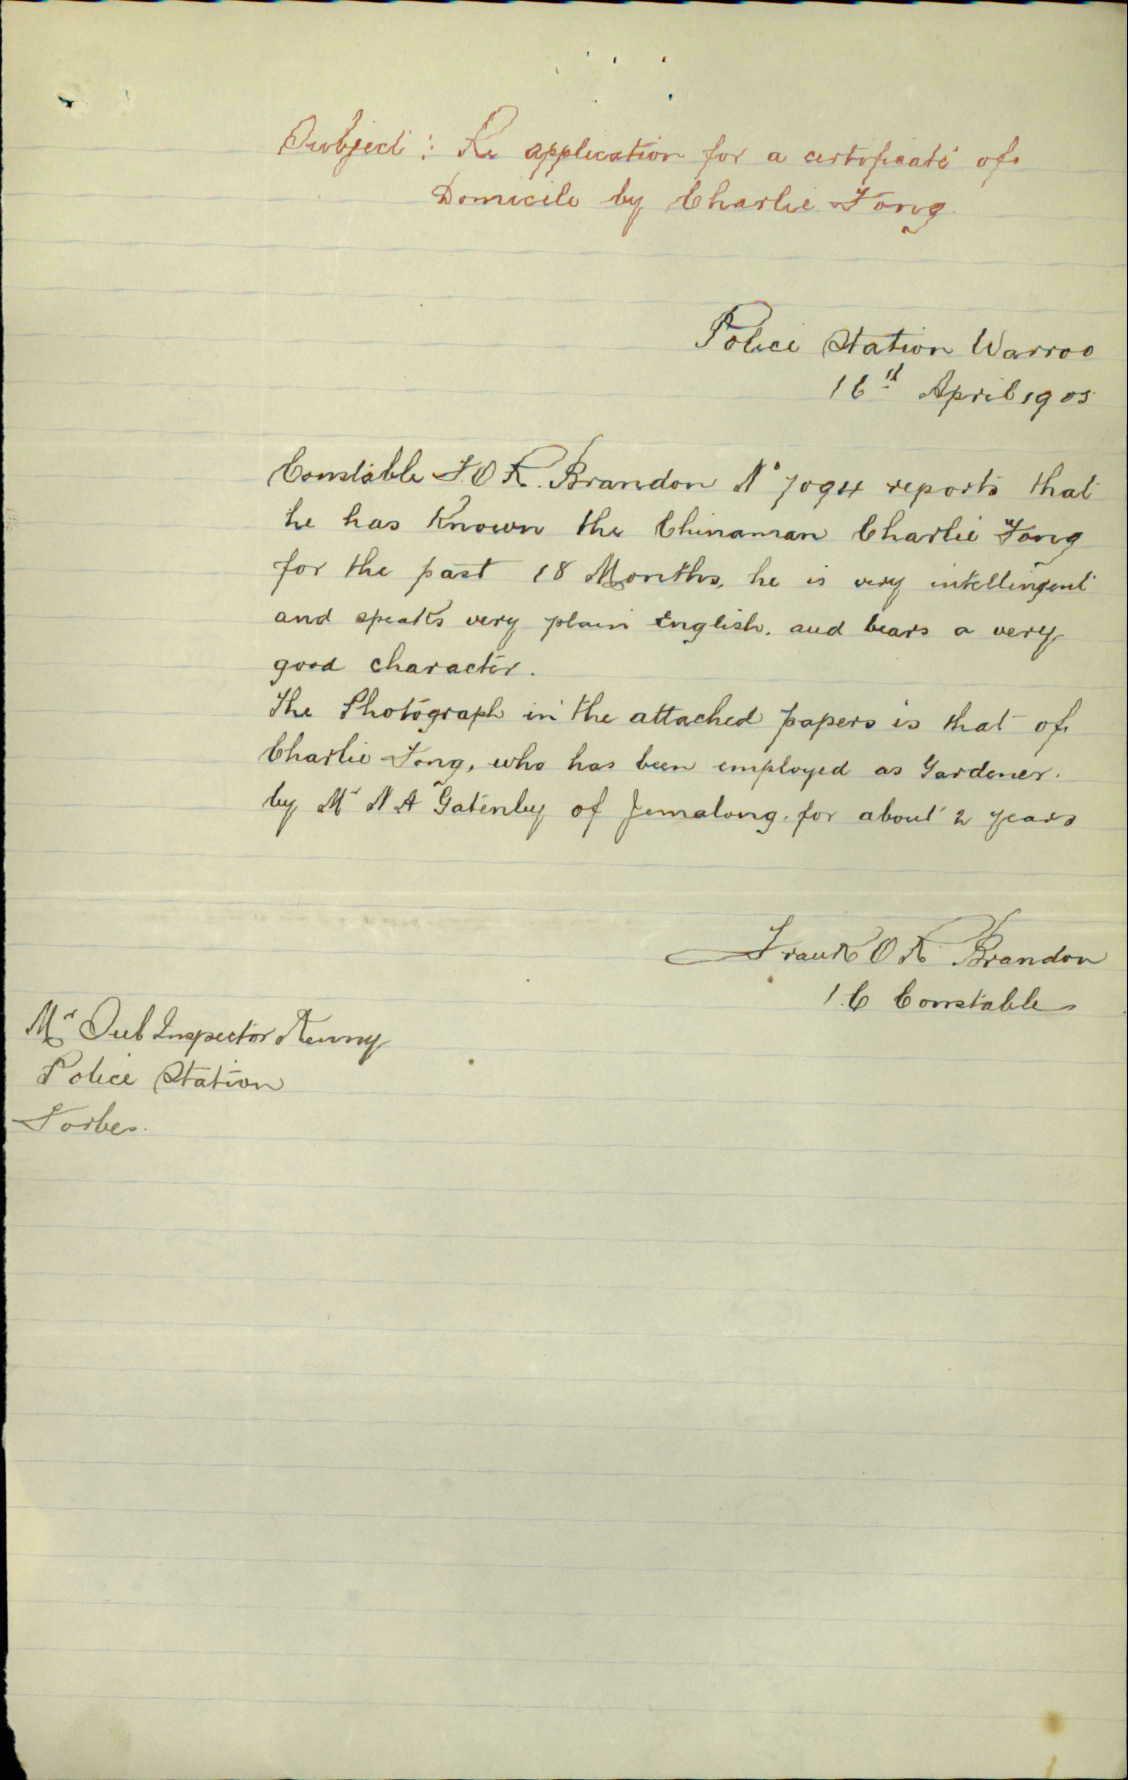 Subject: Re application for a certificate of
Domicile by Charlie Fong
Police Station Warroo
16th April 1905
Constable F.O.K. Brandon No 7094 reports that
he has Known the Chinaman Charlie Fong
for the past 18 Months, he is very intellingent
and speaks very plain English. and bears a very
good character.
The Photograph in the attached papers is that of
Charlie Fong, who has been employed as Gardener.
by Mr N A Gatenby of Jemalong. for about 2 years
Frank O K Brandon
1.C Constable
Mr Sub Inspector Kenny
Police Station
Forbes.